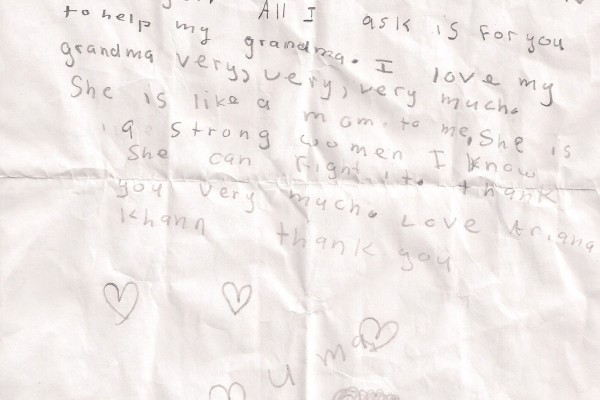 All I ask is for you
to help my grandma. I love my
grandma very, very, very much.
She is like a mom. to me. She is
a strong women I know
She can fight it. thank
you very much. Love Ariana
Khann thank you
u ma